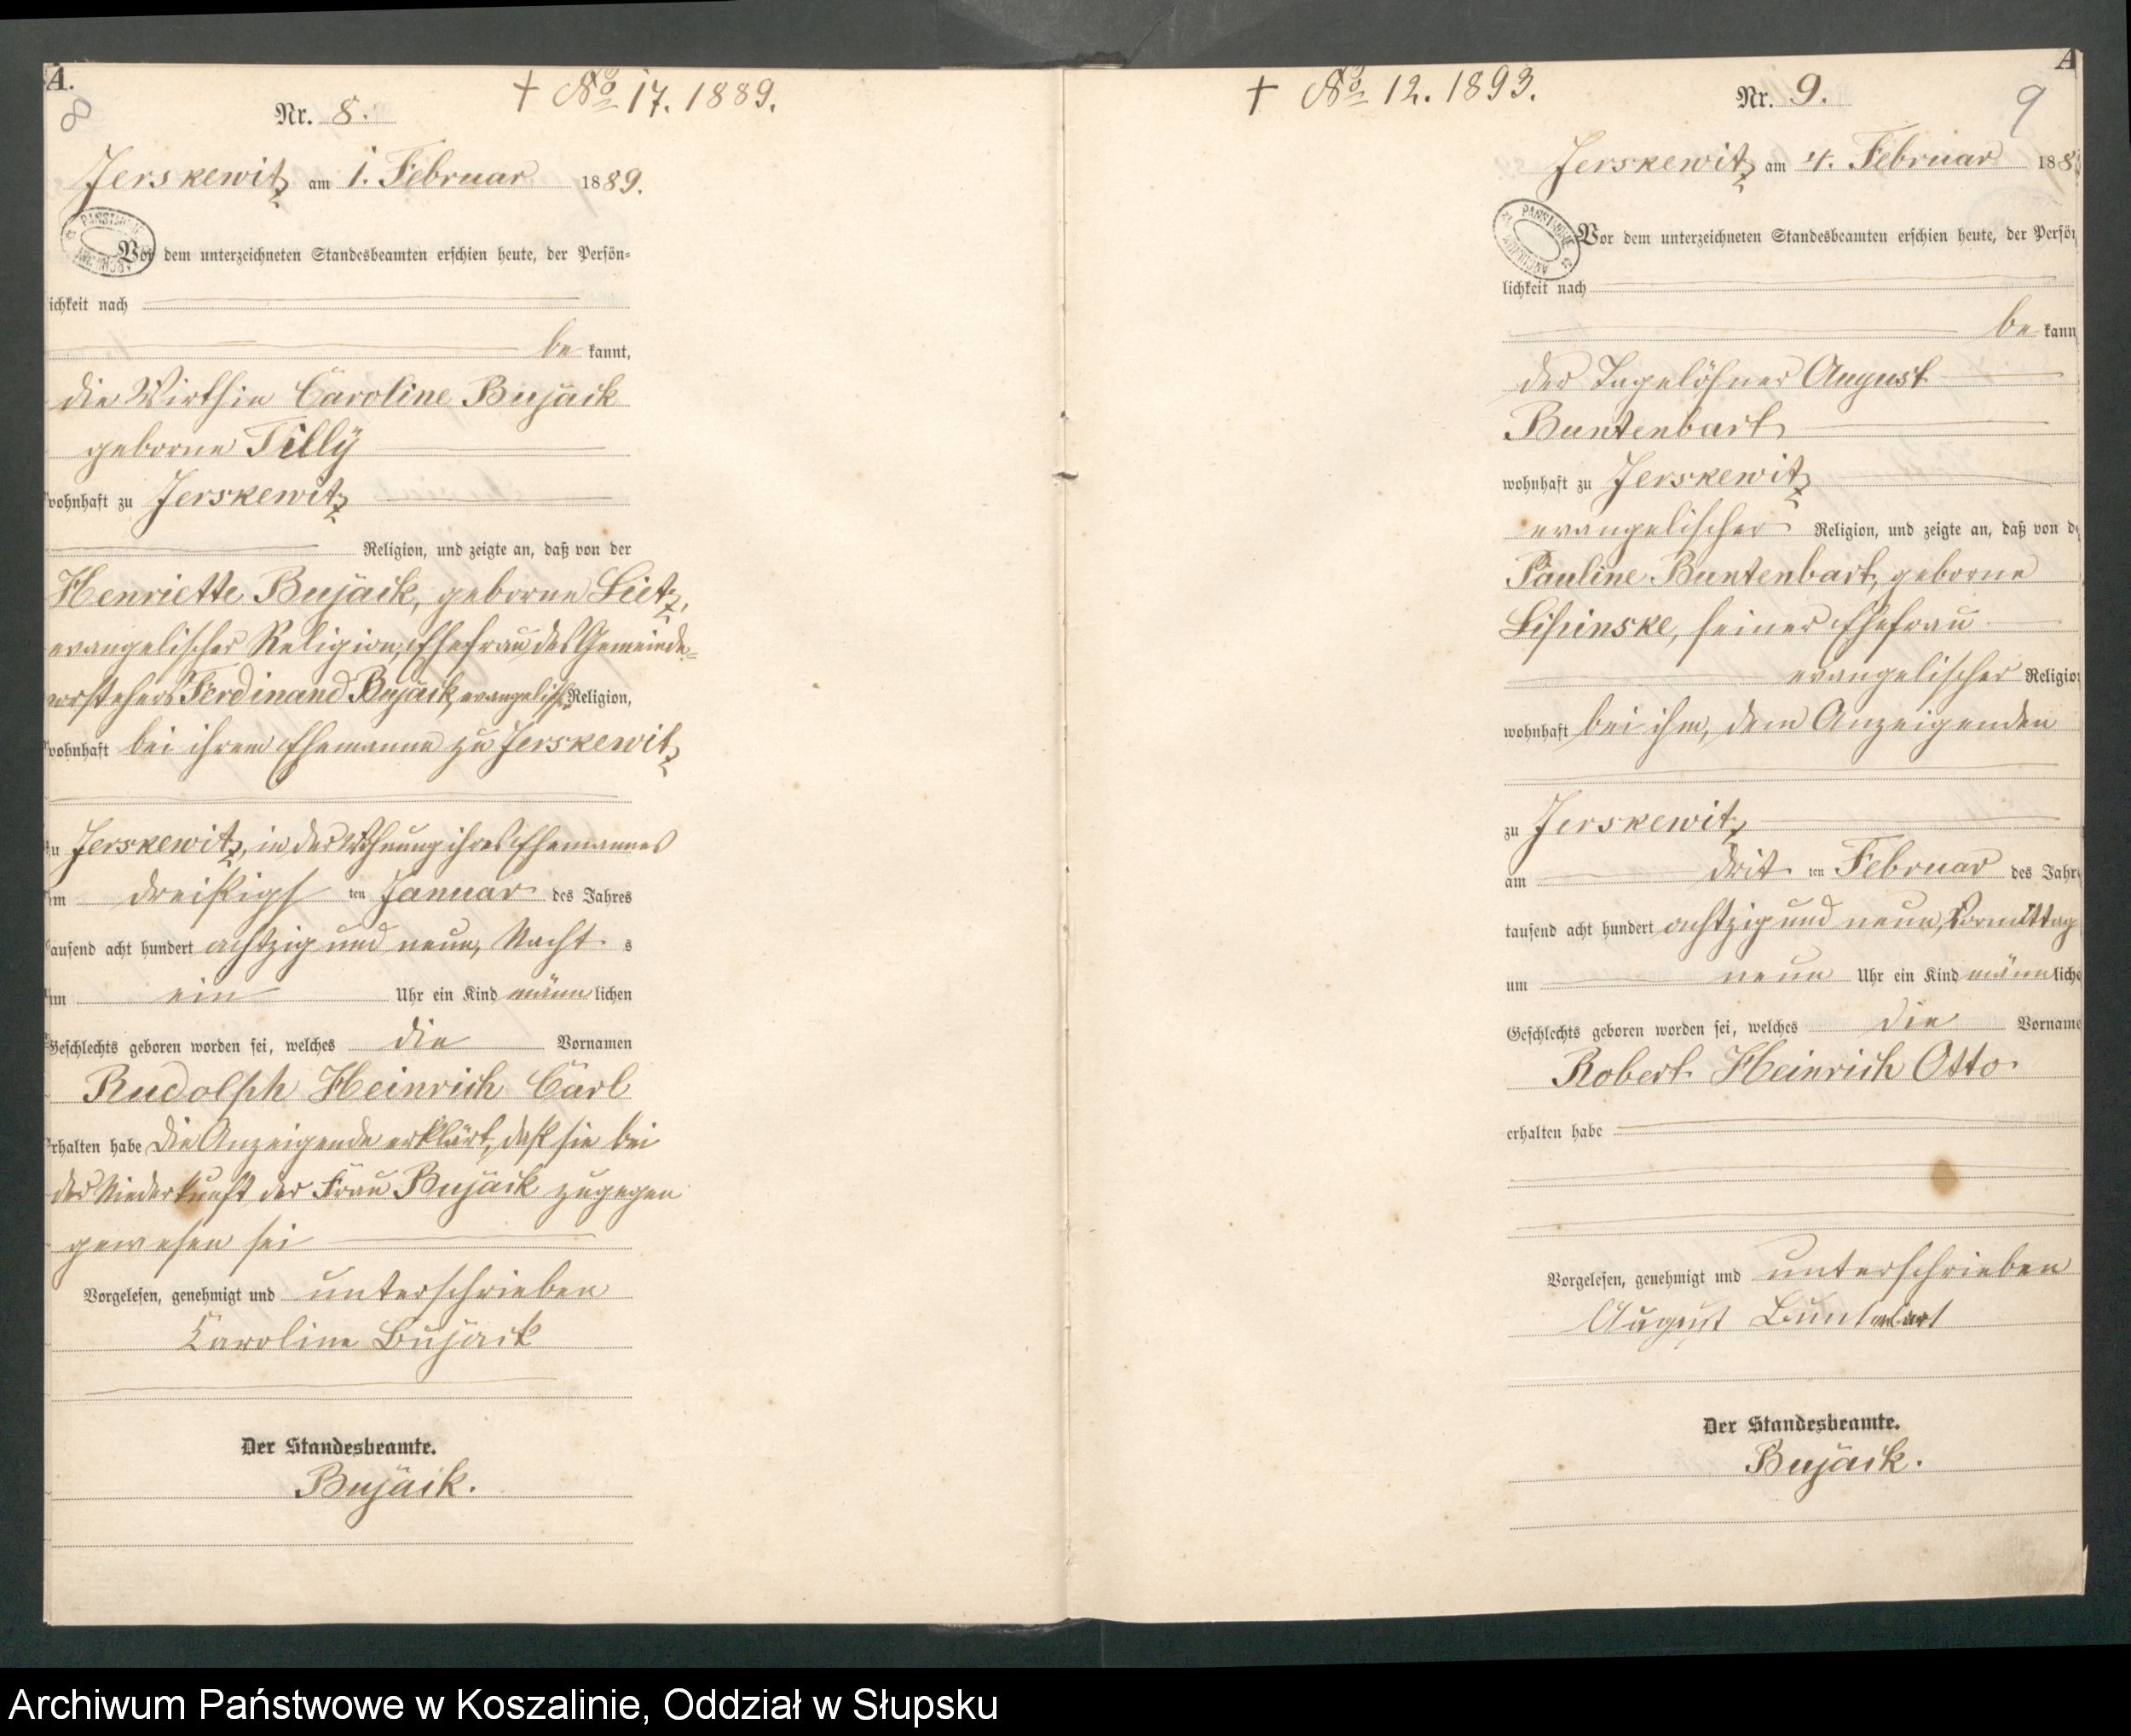 A.
8
Nr. 8.
† No 17. 1889.
Jerskewitz am 1. Februar 1889.
Vor dem unterzeichneten Standesbeamten erschien heute, der Persön=
ichkeit nach
be kannt,
die Wirthin Caroline Bujack
geborne Tilly
wohnhaft zu Jerskewitz
Religion, und zeigte an, daß von der
Henriette Bujack, geborne Lietz,
evangelischer Religion, Ehefrau des Gemeinde-
vorstehers Ferdinand Bujack, evangelisch. Religion,
wohnhaft bei ihrem Ehemanne zu Jerskewitz
zu Jerskewitz, in der Wohnung ihres Ehemannes
am dreißigs ten Januar des Jahres
tausend acht hundert achtzig und neun, Nacht s
um ein Uhr ein Kind männ lichen
Geschlechts geboren worden sei, welches die Vornamen
Rudolph Heinrich Carl
erhalten habe Die Anzeigende erklärt, daß sie bei
der Niederkunft der Frau Bujack zugegen
gewesen sei
Vorgelesen, genehmigt und unterschrieben
Caroline Bujack
Der Standesbeamte.
Bujack.
† No 12. 1893.
A
Nr. 9.
9
Jerskewitz am 4. Februar 188
PANSTWOWE ARCHIWUM
Vor dem unterzeichneten Standesbeamten erschien heute, der Persön
lichkeit nach
be kann
der Tagelöhner August
Buntenbart
wohnhaft zu Jerskewitz
evangelischer Religion, und zeigte an, daß von de
Pauline Buntenbart, geborne
Lipinske, seiner Ehefrau
evangelischer Religion
wohnhaft bei ihm, dem Anzeigenden
zu Jerskewitz
am drit ten Februar des Jahre
tausend acht hundert achtzig und neun, Vormittag
um neun Uhr ein Kind männ liche
Geschlechts geboren worden sei, welches die Vorname
Robert Heinrich Otto
erhalten habe
Vorgelesen, genehmigt und unterschrieben
August Buntenbart
Der Standesbeamte.
Bujack.
Archiwum Państwowe w Koszalinie, Oddział w Słupsku